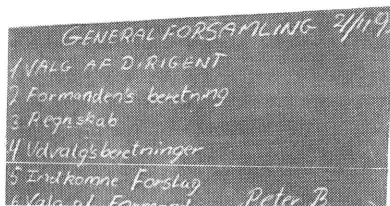 GENERALFORSAMLING 2/11 9
1 VALG AF DIRIGENT
2 Formanden's beretning
3 Regnskab
4 Udvalgsberetninger
5 Indkomne Forslag
6 Valg af Formand Peter B